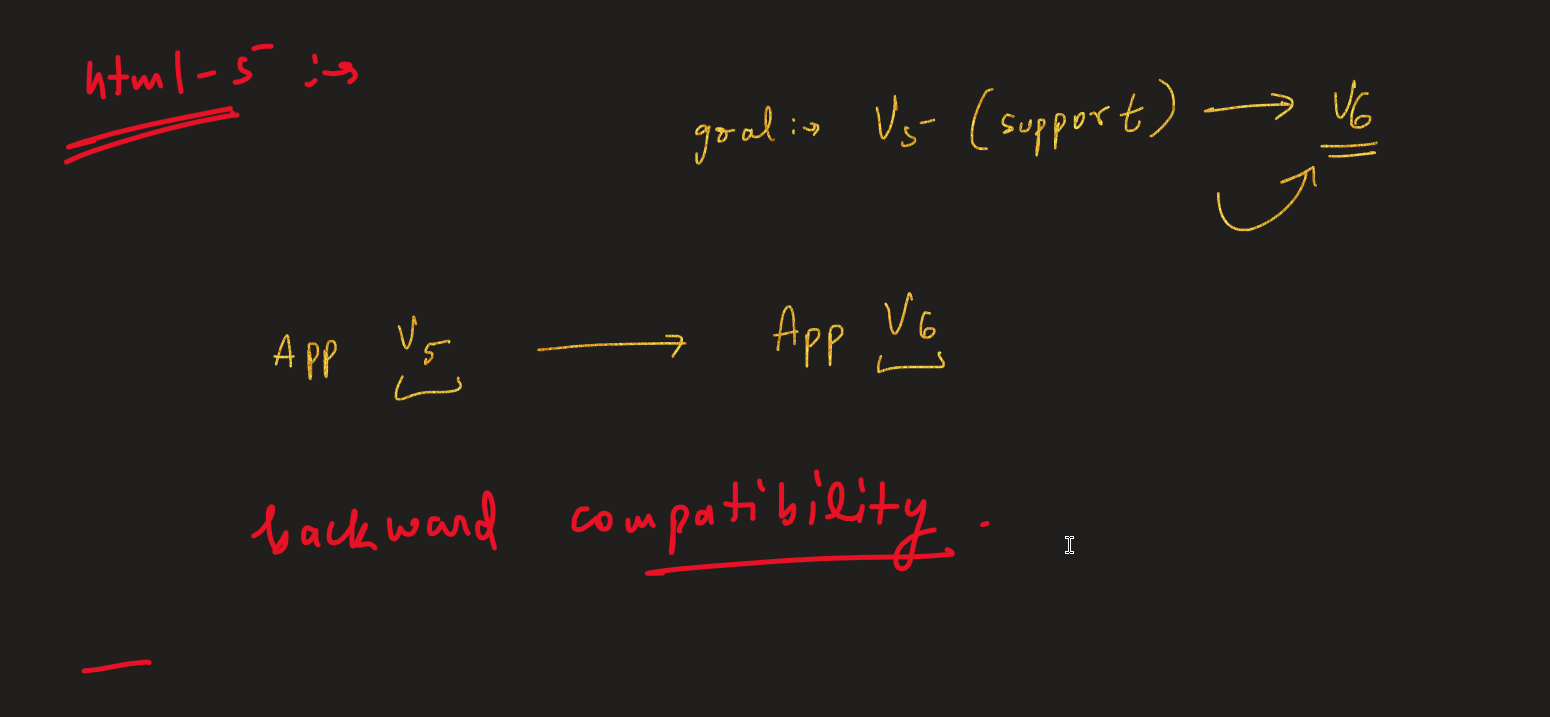 html-5 :→
goal :→ V5 (support) → V6
App V5 → App V6
backward compatibility.